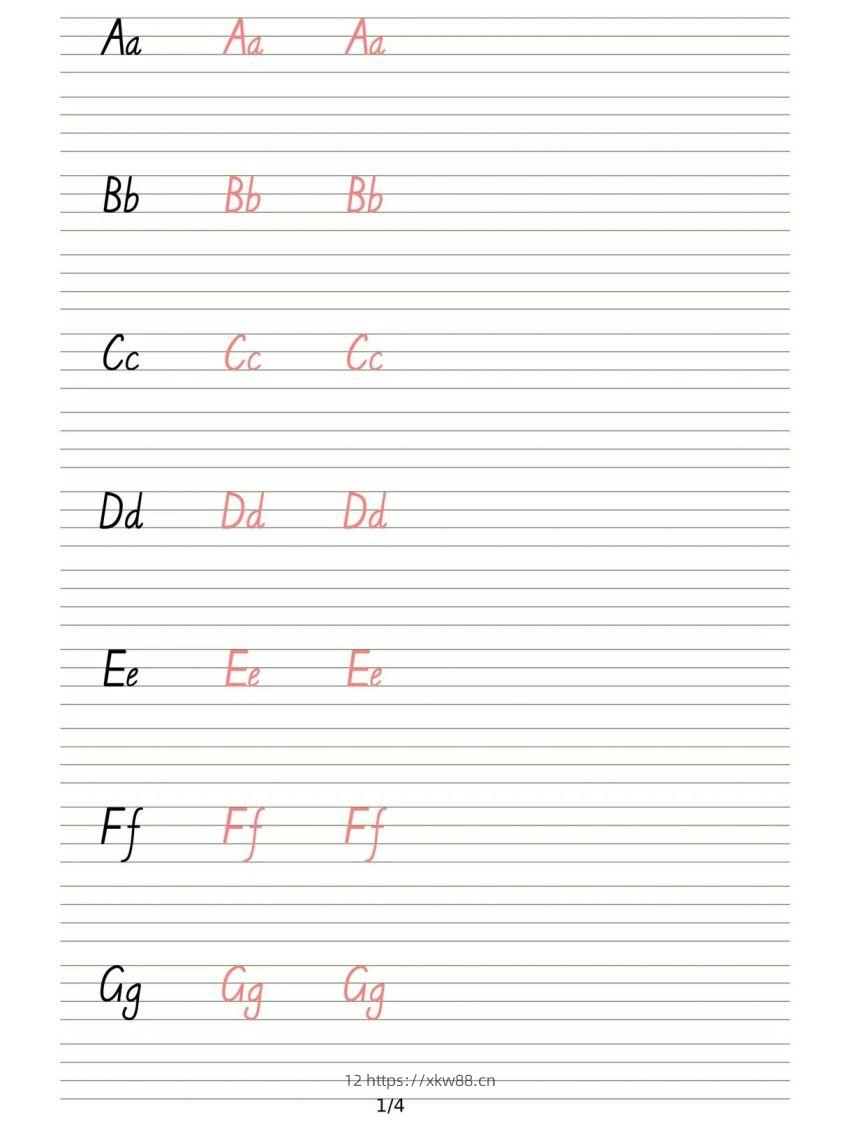 Aa Aa Aa
Bb Bb Bb
Cc Cc Cc
Dd Dd Dd
Ee Ee Ee
Ff Ff Ff
Gg Gg Gg
12 https://xkw88.cn
1/4